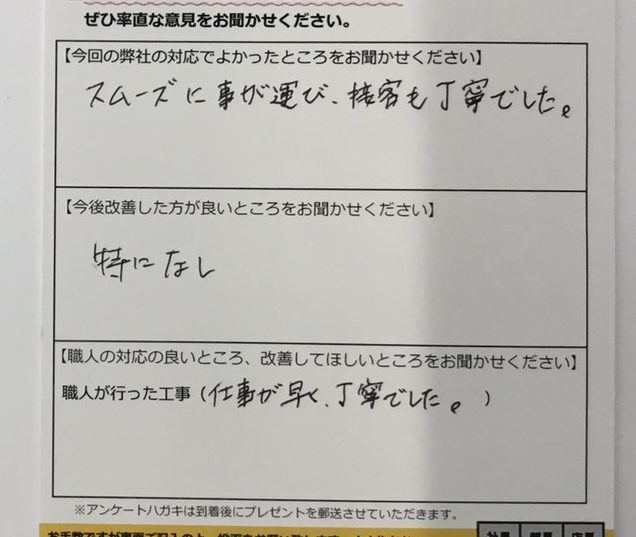 ぜひ率直な意見をお聞かせください。
【今回の弊社の対応でよかったところをお聞かせください】
スムーズに事が運び、接客も丁寧でした。
【今後改善した方が良いところをお聞かせください】
特になし
【職人の対応の良いところ、改善してほしいところをお聞かせください】
職人が行った工事（仕事が早く、丁寧でした。）
※アンケートハガキは到着後にプレゼントを郵送させていただきます。
お手数ですが裏面ご記入の上、